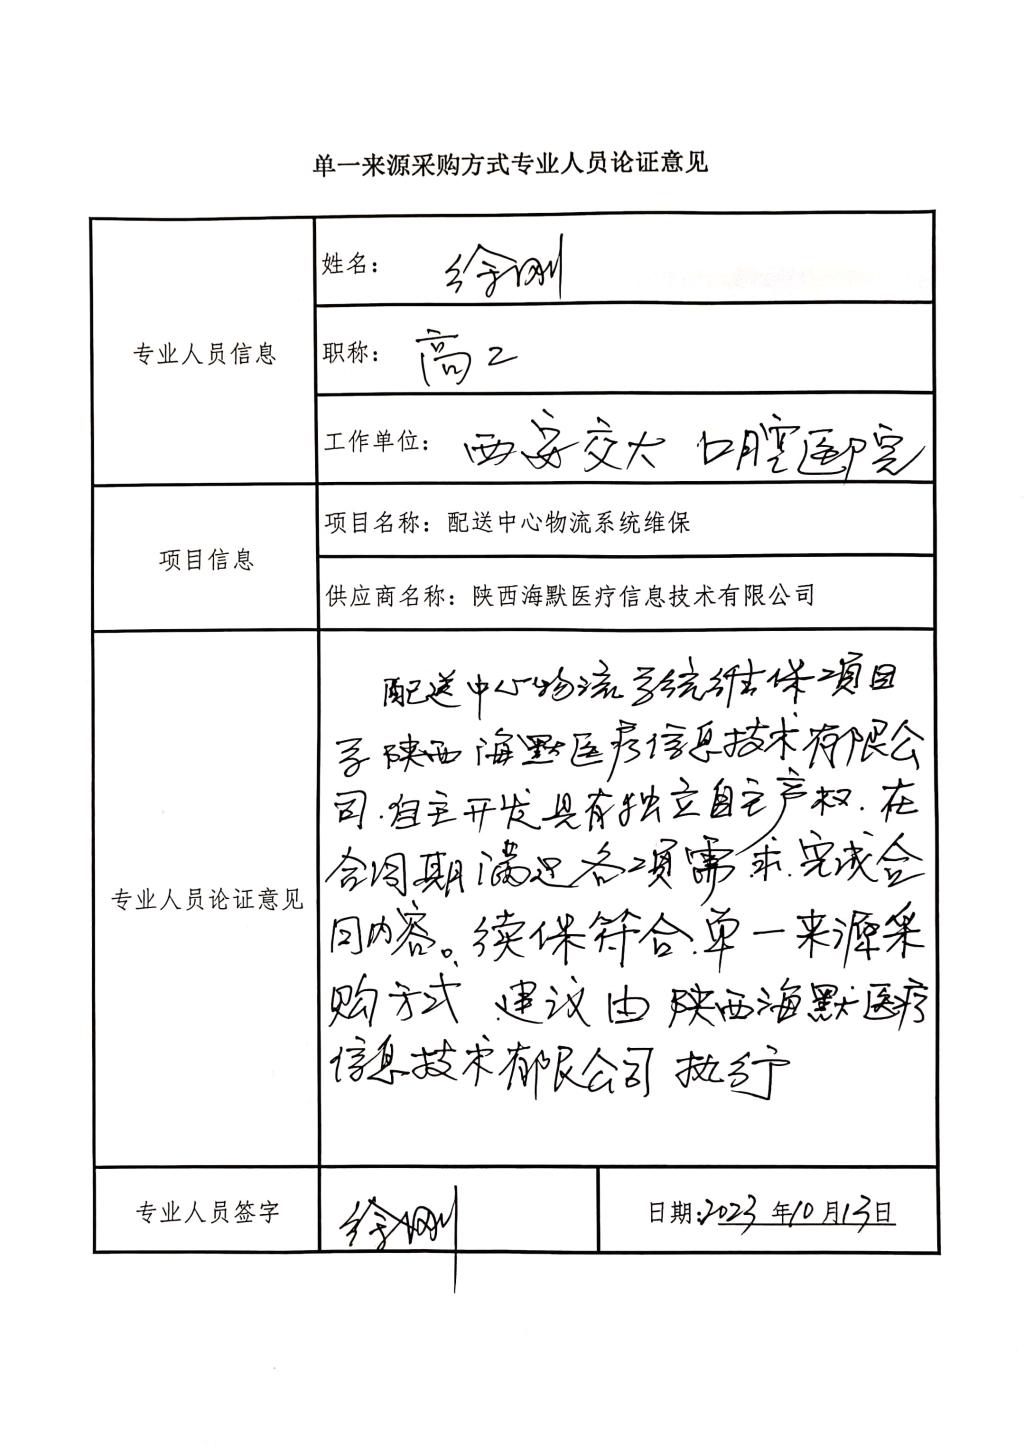 单一来源采购方式专业人员论证意见
专业人员信息
姓名： 徐刚
职称： 高工
工作单位： 西安交大 口腔医院
项目信息
项目名称：配送中心物流系统维保
供应商名称：陕西海默医疗信息技术有限公司
专业人员论证意见
配送中心物流系统维保项目
系陕西海默医疗信息技术有限公
司.自主开发具有独立自主产权.在
合同期满足各项需求.完成合
同内容。续保符合.单一来源采
购方式 建议由陕西海默医疗
信息技术有限公司执行
专业人员签字
徐刚
日期:2023年10月13日